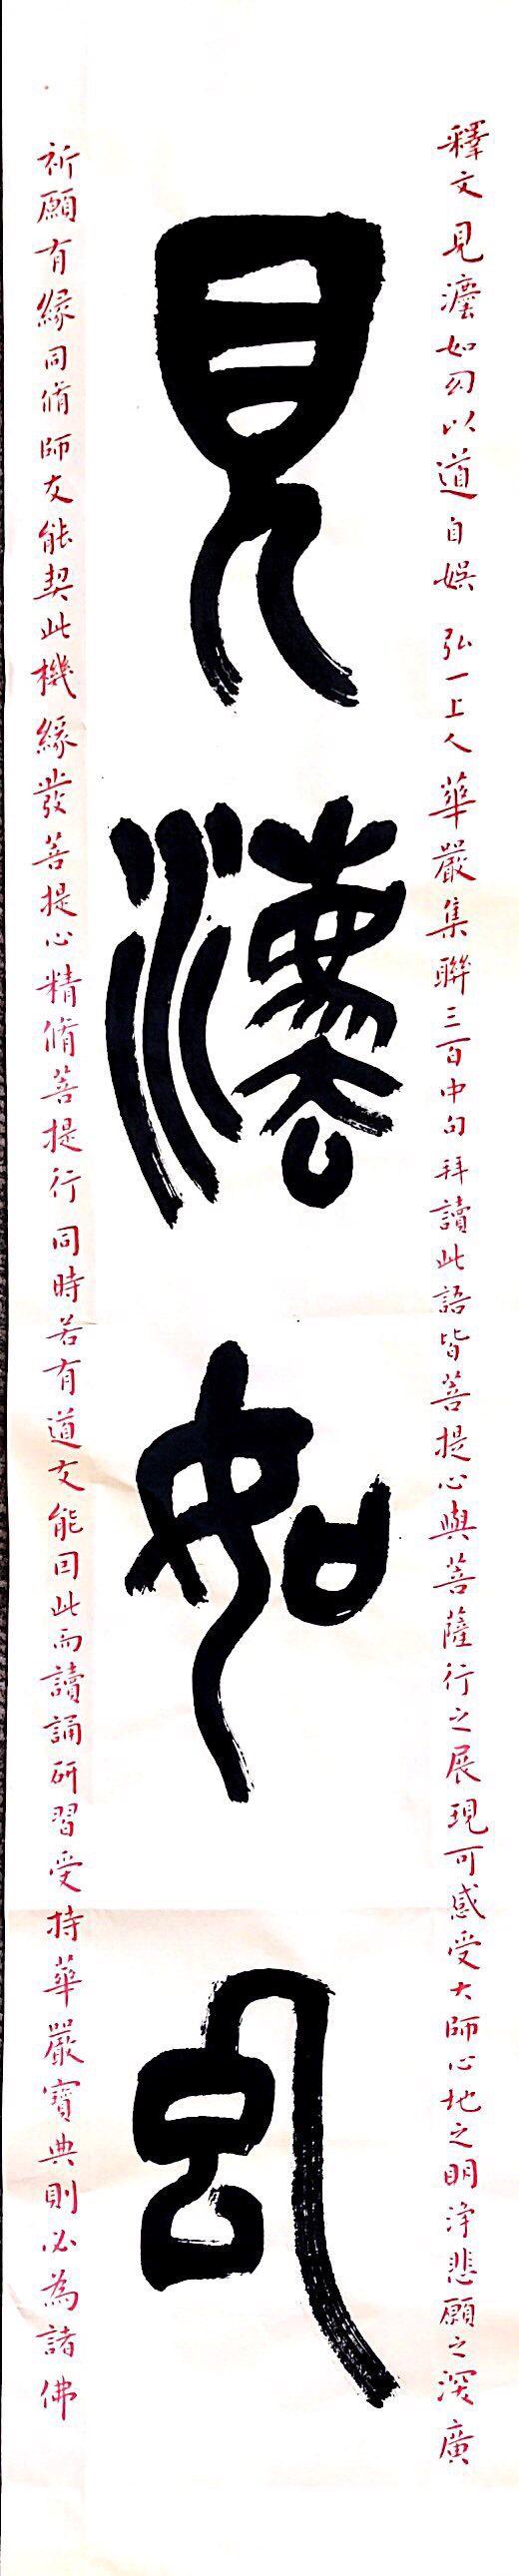 釋文見灋如幻以道自娛 弘一上人華嚴集聯三百中句拜讀此語皆菩提心與菩薩行之展現可感受大師心地之明淨悲願之深廣
見灋如幻
祈願有緣同脩師友能契此機緣發菩提心精脩菩提行同時若有道友能囙此而讀誦研習受持華嚴寶典則必為諸佛